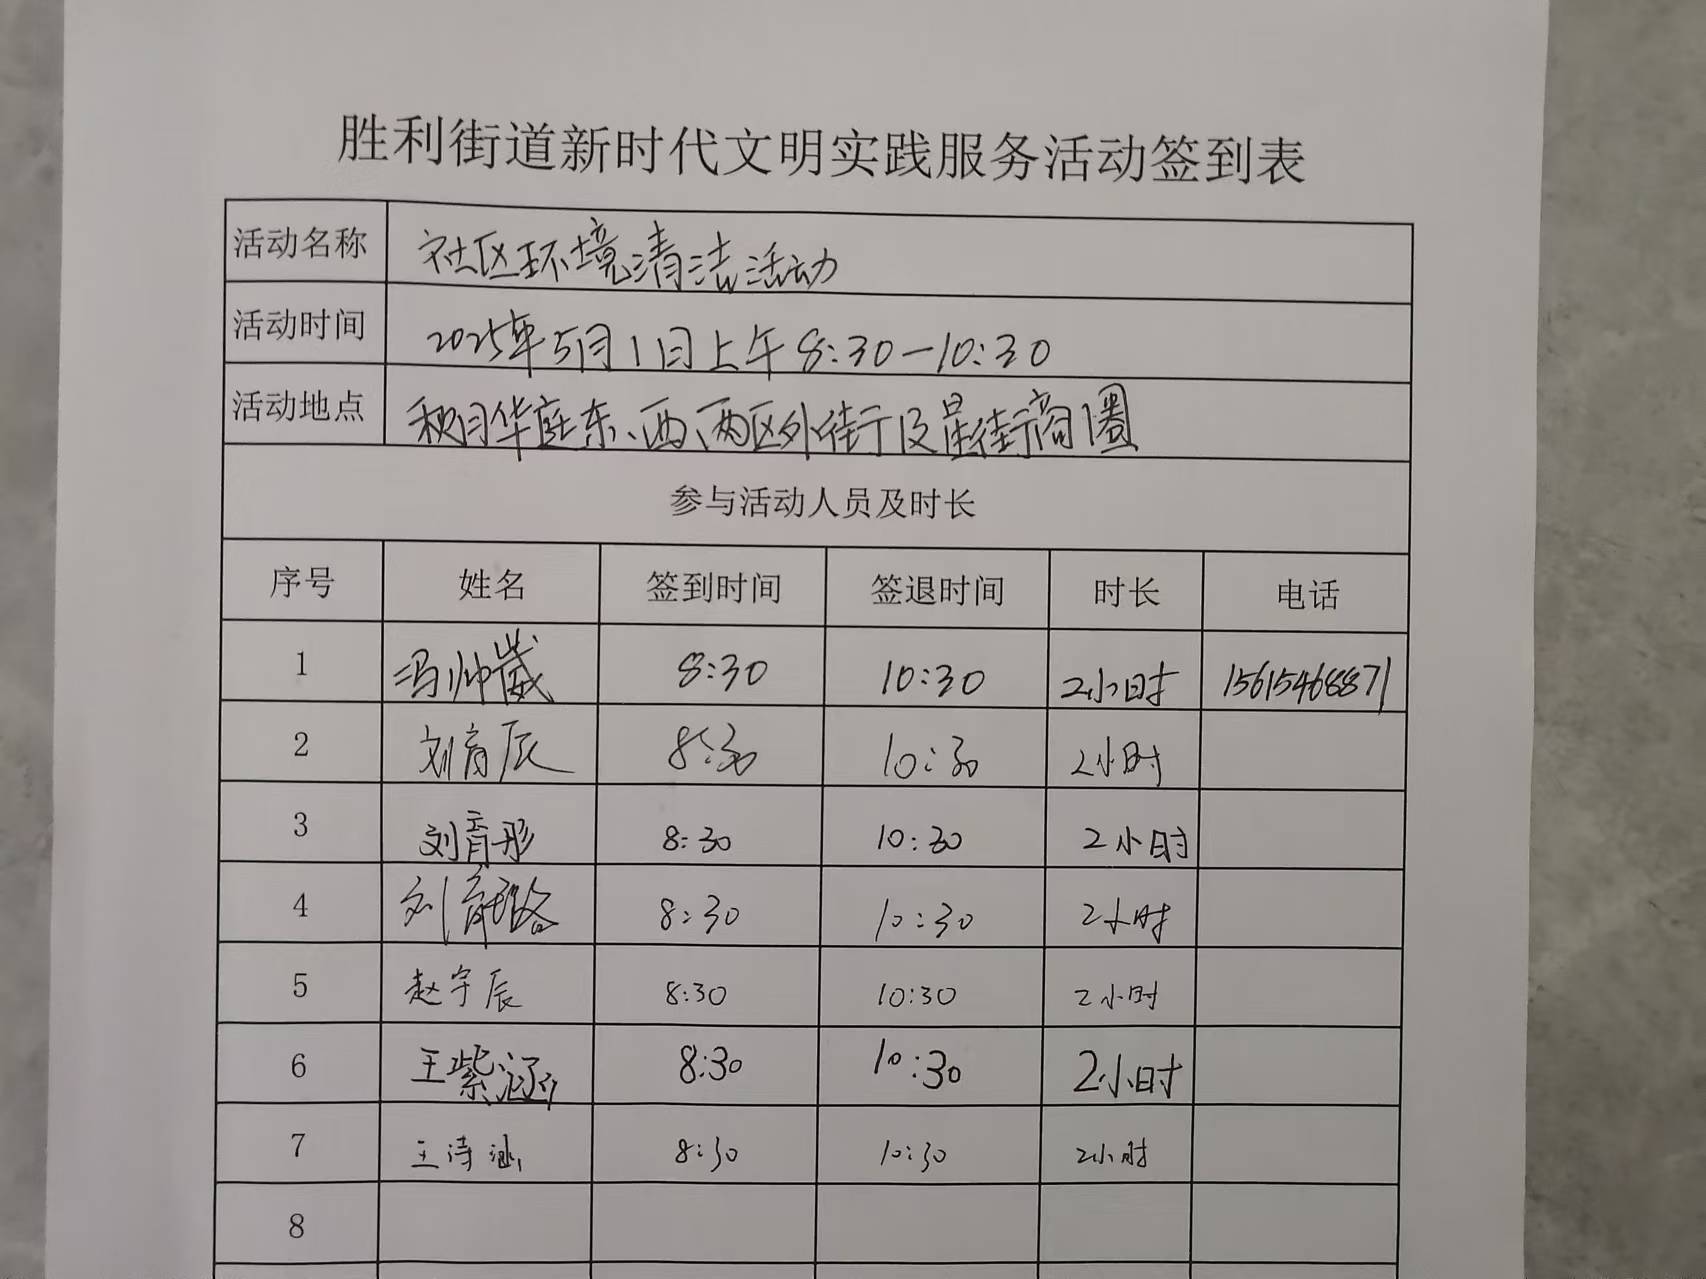 胜利街道新时代文明实践服务活动签到表
活动名称 社区环境清洁活动
活动时间 2025年5月1日上午8:30—10:30
活动地点 秋月华庭东、西、两区外街及星街商圈
参与活动人员及时长
序号 姓名 签到时间 签退时间 时长 电话
1 冯帅崴 8:30 10:30 2小时 15615468871
2 刘育辰 8:30 10:30 2小时
3 刘育彤 8:30 10:30 2小时
4 刘 8:30 10:30 2小时
5 赵宇辰 8:30 10:30 2小时
6 王紫涵 8:30 10:30 2小时
7 王诗涵 8:30 10:30 2小时
8